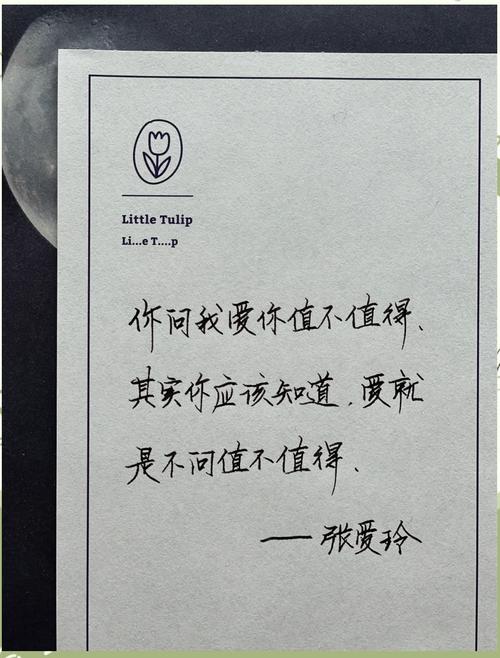 Little Tulip
Li...e T....p
你问我爱你值不值得、
其实你应该知道，爱就
是不问值不值得、
——张爱玲